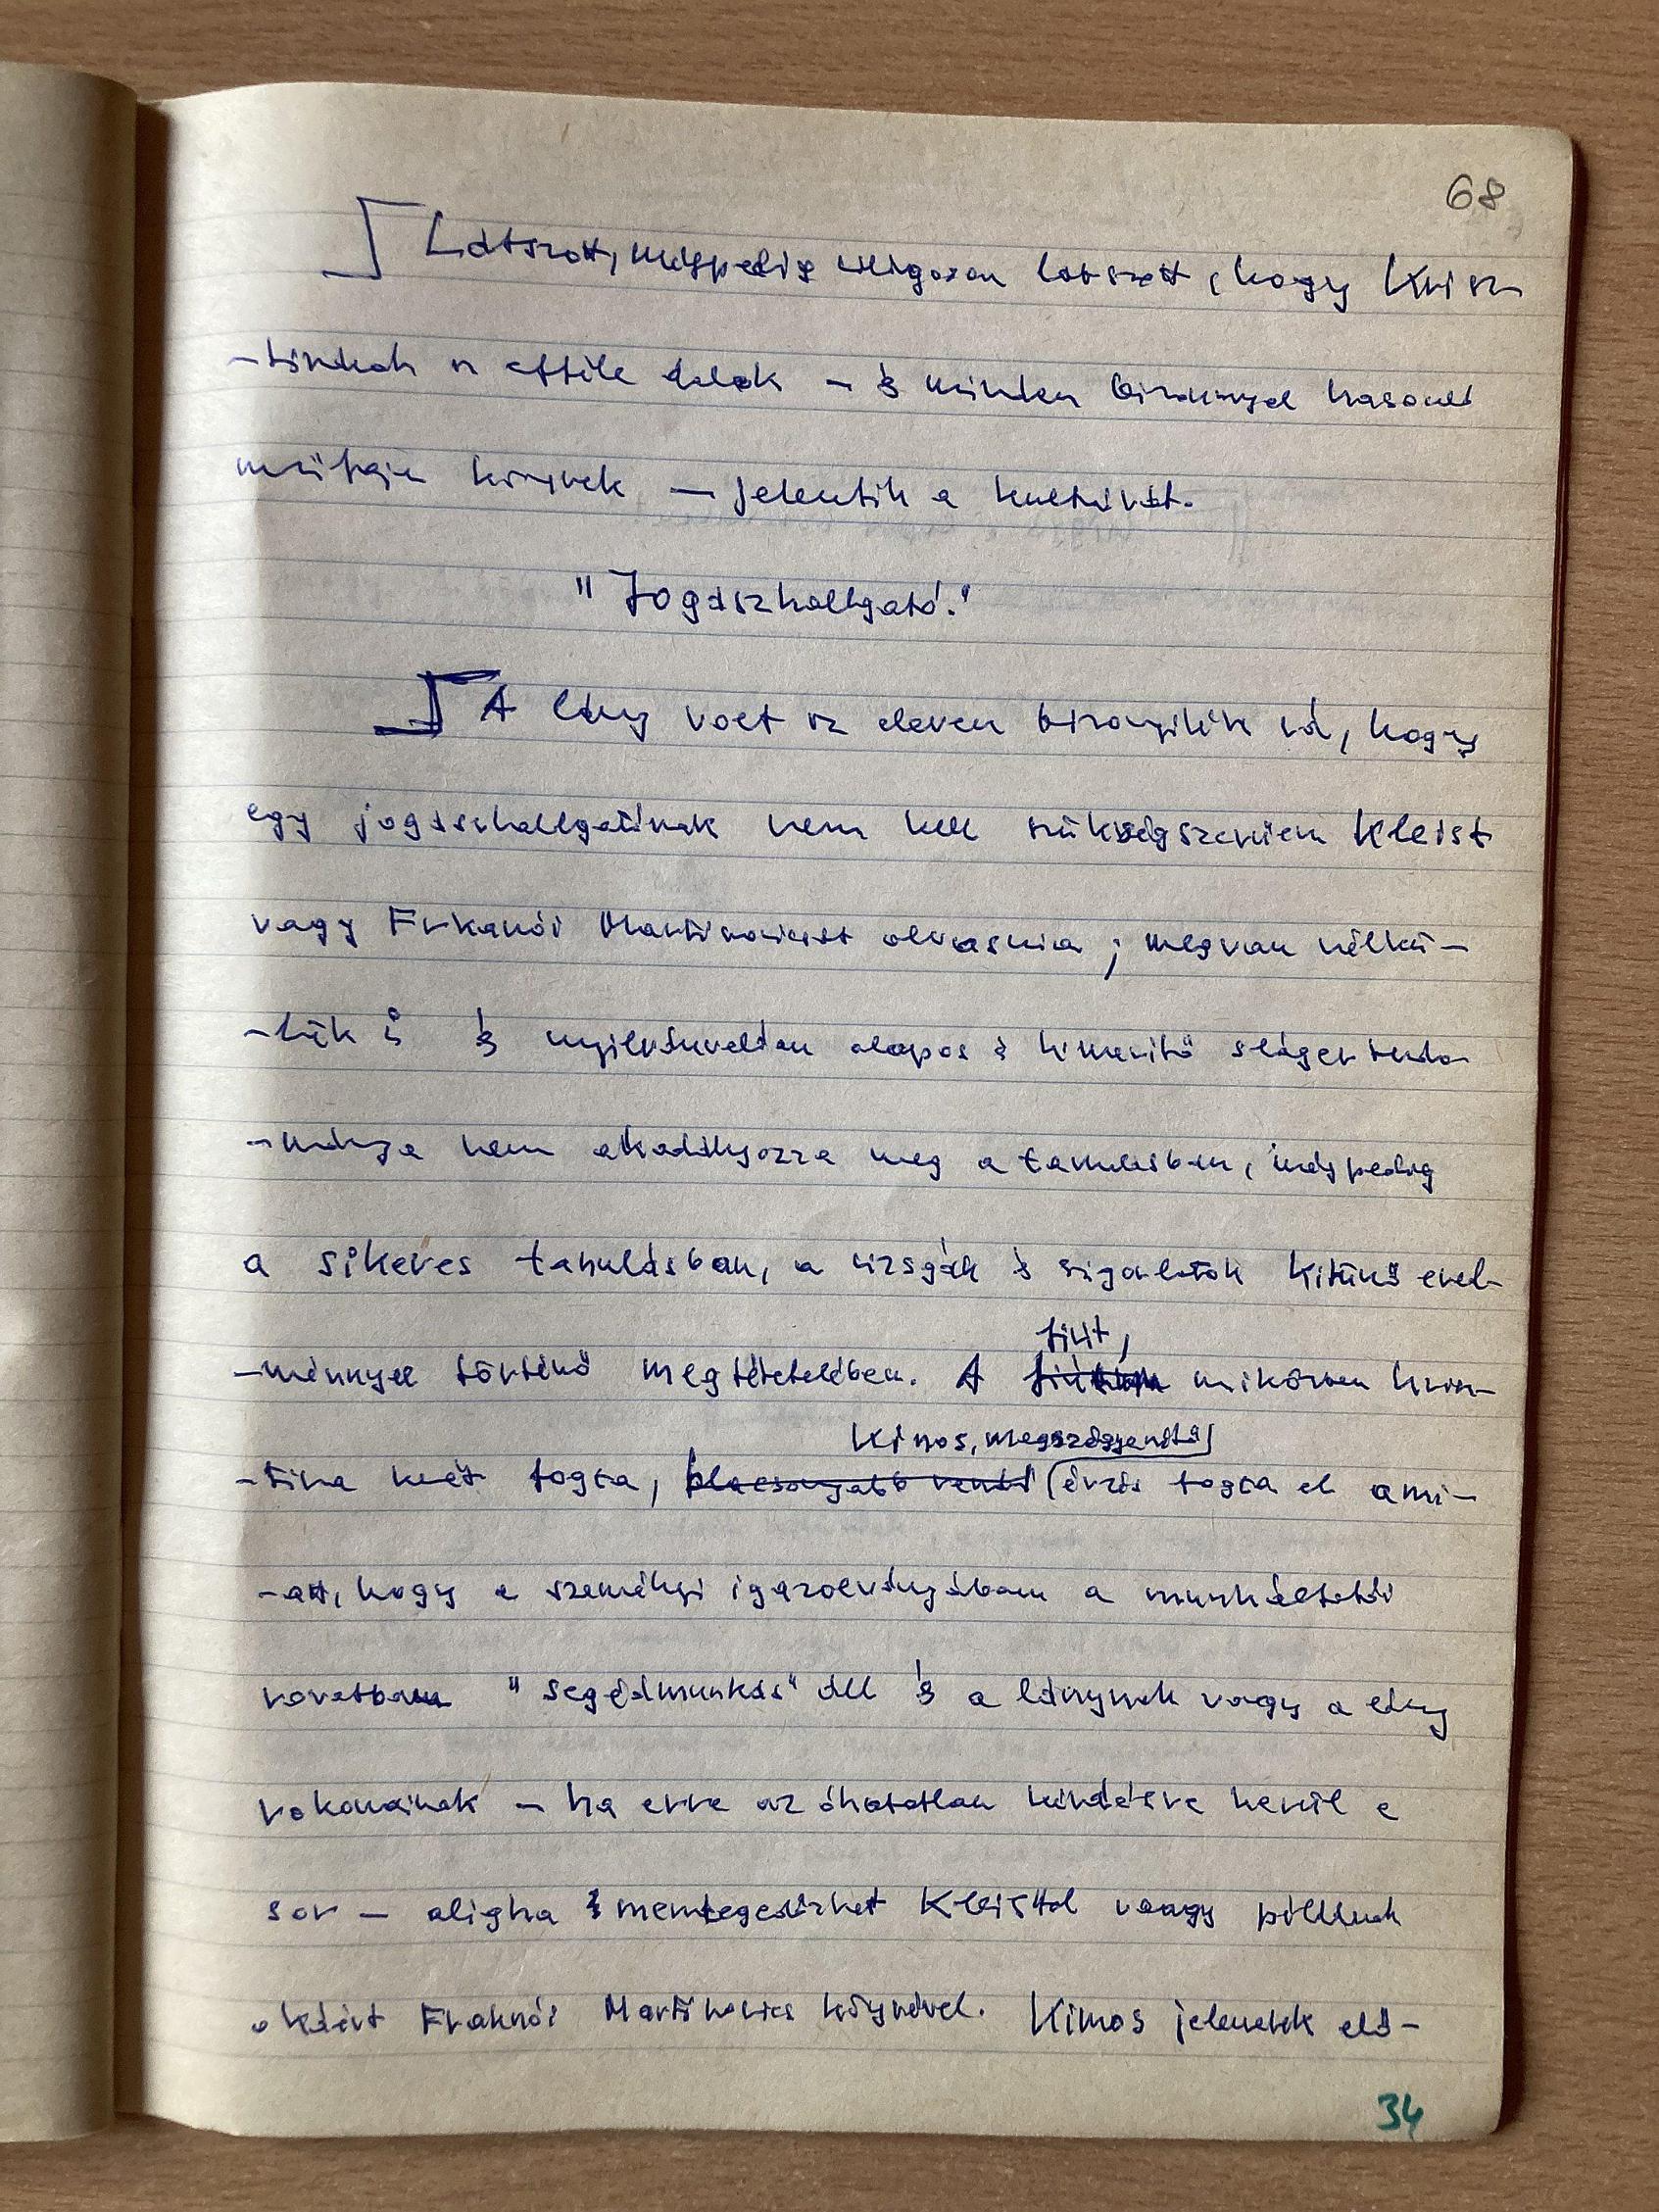 68
Látszott, máspedig világosan látszott, hogy Krisz-
-tinának az effile dalok – és minden bizonnyal hasonló
műfajú könyvek – jelentik a kultúrát.
"Jogászhallgató."
A lány volt az eleven bizonyíték rá, hogy
egy jogászhallgatónak nem kell szükségszerűen Kleist
vagy Fraknói Martinovicsát olvasnia; megvan nélkü-
-lük is és nyilvánvalóan alapos és kimerítő sláger tudo-
-mánya nem akadályozza meg a tanulásban, máspedig
a sikeres tanulásban, a vizsgák és szigorlatok kitűnő ered-
-ménnyel történő megtételében. A
fiút,
mikörben krisz-
-tina kezét fogta,
kínos, megszégyenítő
érzés fogta el ami-
-att, hogy a személyi igazolványában a munkáltatói
rovatban "segédmunkás" áll és a lánynak vagy a lány
rokonainak – ha erre az óhatatlan kérdésre kerül a
sor – aligha mentegetőzhet Kleisttel vagy példának
okáért Fraknói Martinovics könyvével. Kínos jelenetek elő-
34